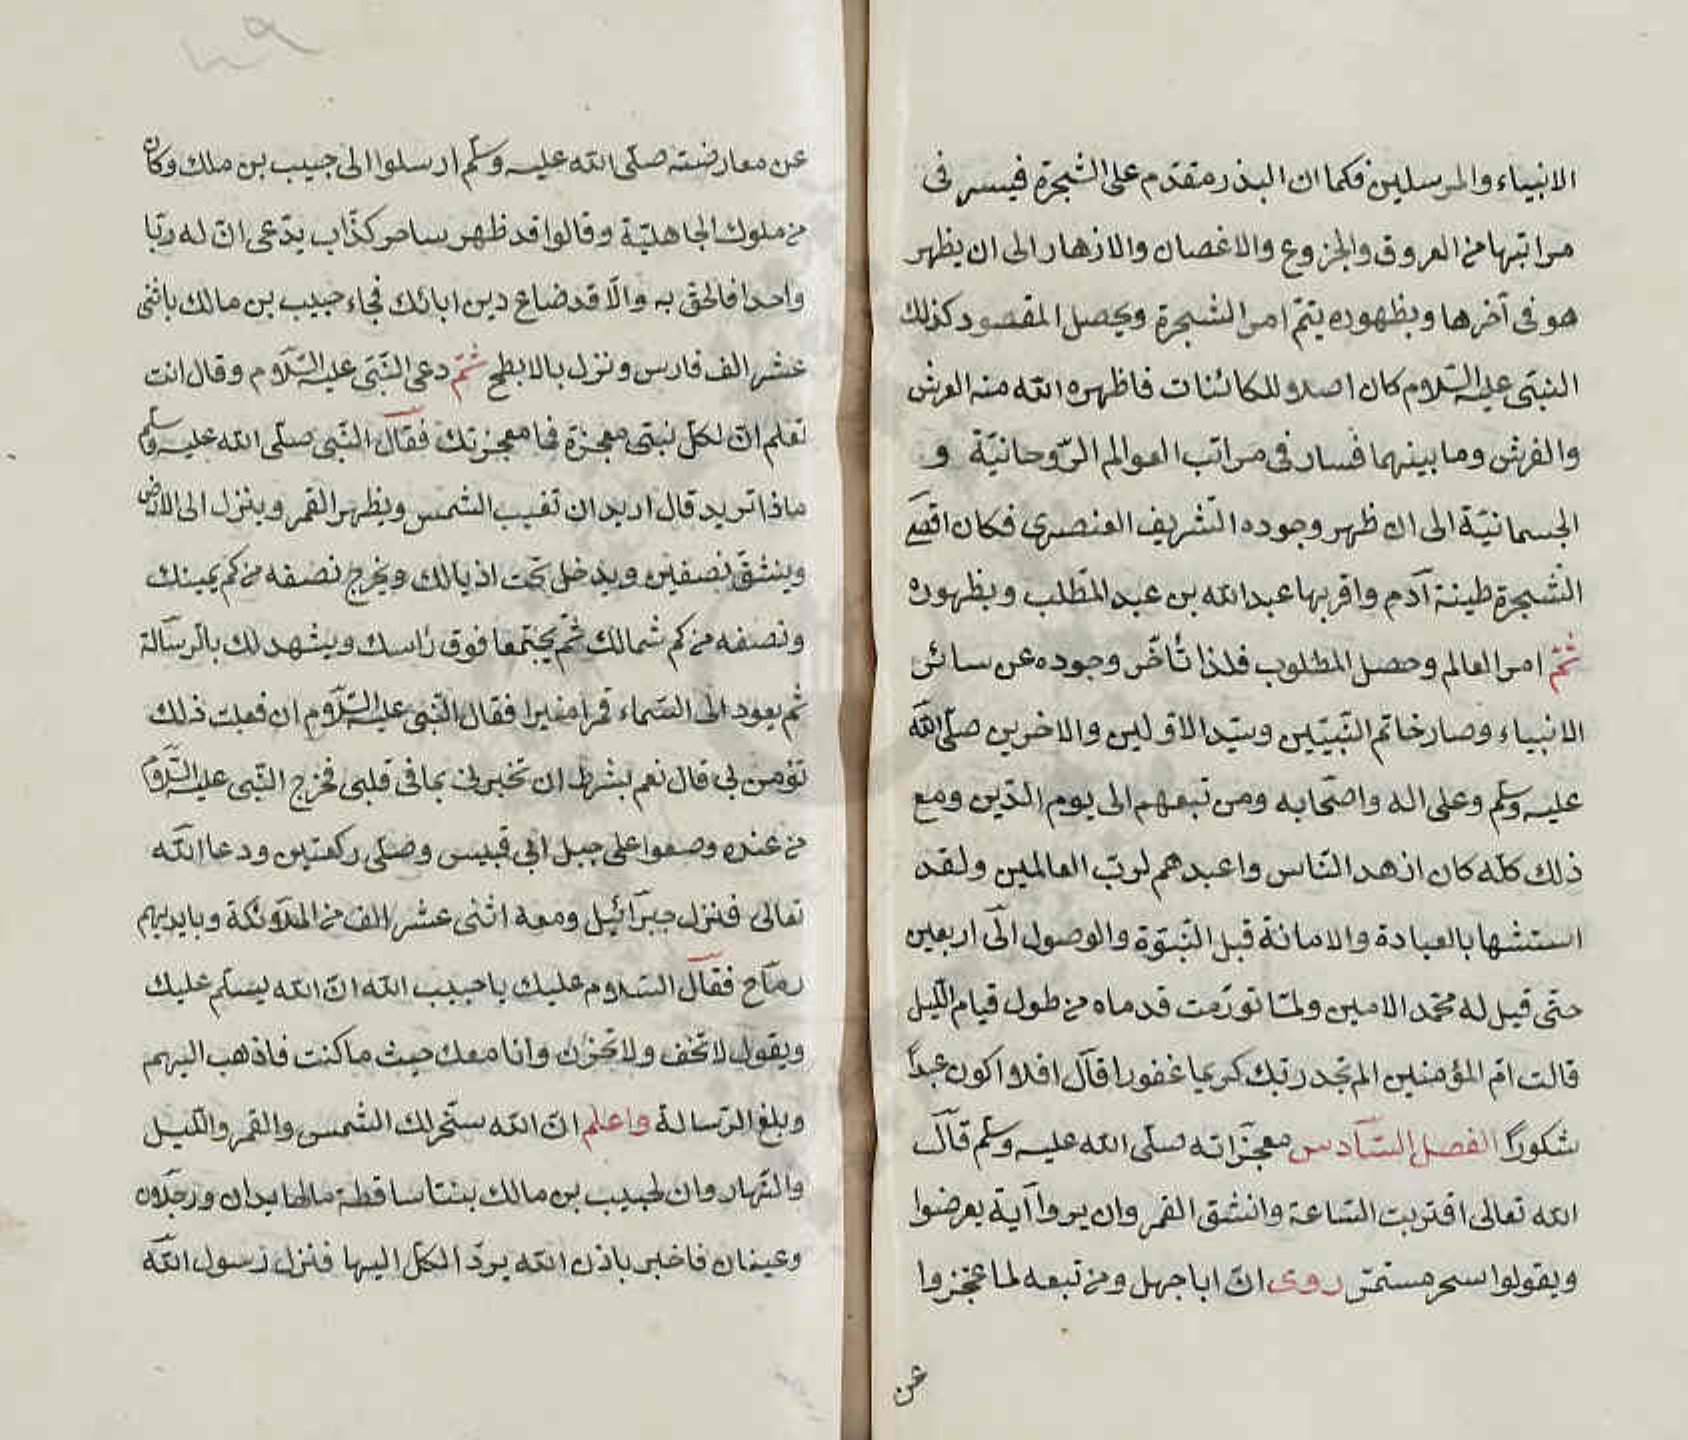 الانبياء والمرسلين فكما ان البذر مقدم على الشجرة فيسر فى
مراتبها من العروق والجزوع والاغصان والازهار الى ان يظهر
هو فى آخرها وبظهوره يتمّ امر الشجرة ويحصل المقصود كذلك
النبىّ عليه السّلام كان اصلا للكائنات فاظهره الله منه العرش
والفرش وما بينهما فسار فى مراتب العوالم الرّوحانيّة و
الجسمانيّة الى ان ظهر وجوده الشريف العنصرى فكان اقصى
الشجرة طينة آدم واقربها عبد الله بن عبد المطّلب وبظهوره
ثمّ امر العالم وحصل المطلوب فلذا تأخّر وجوده عن سائر
الانبياء وصار خاتم النّبيّين وسيّد الاوّلين والاخرين صلّى الله
عليه وسلّم وعلى اله واصحابه ومن تبعهم الى يوم الدّين ومع
ذلك كلّه كان ازهد النّاس واعبدهم لربّ العالمين ولقد
استشها بالعبادة والامانة قبل النّبوّة والوصول الى اربعين
حتى قيل له محمّد الامين ولمّا تورّمت قدماه من طول قيام اللّيل
قالت امّ المؤمنين الم تجد ربّك كريما غفورا قال افلا اكون عبدًا
شكورًا الفصل السّادس معجزاته صلّى الله عليه وسلّم قال
الله تعالى اقتربت السّاعة وانشق القمر وان يروا آية يعرضوا
ويقولوا سحر مستمرّ روى انّ ابا جهل ومن تبعه لما عجزوا
عن
عن معارضته صلّى الله عليه وسلّم ارسلوا الى حبيب بن ملك وكان
من ملوك الجاهليّة وقالوا قد ظهر ساحر كذّاب يدّعى انّ له ربّا
واحدا فالحق به والّا قد ضاع دين ابائك فجاء حبيب بن مالك باثنى
عشر الف فارس ونزل بالابطح ثمّ دعى النّبىّ عليه السّلام وقال انت
تعلم انّ لكلّ نبىّ معجزة فما معجزتك فقال النّبى صلّى الله عليه وسلّم
ماذا تريد قال اريد ان تغيب الشّمس ويظهر القمر وينزل الى الارض
وينشقّ نصفين ويدخل تحت اذيالك ويخرج نصفه من كم يمينك
ونصفه من كم شمالك ثمّ يجتمعا فوق رأسك ويشهد لك بالرّسالة
ثمّ يعود الى السّماء قمرا منيرا فقال النّبى عليه السّلام ان فعلت ذلك
تؤمن بى قال نعم بشرط ان تخبرنى بما فى قلبى فخرج النّبى عليه السّلام
من عنده وصعوا على جبل ابى قبيس وصلّى ركعتين ودعا الله
تعالى فنزل جبرائيل ومعه اثنى عشر الف من الملائكة وبايديهم
رماح فقال السّلام عليك يا حبيب الله انّ الله يسلّم عليك
ويقول لا تخف ولا تحزن وانا معك حيث ما كنت فاذهب اليهم
وبلغ الرّسالة واعلم انّ الله سخّر لك الشمس والقمر واللّيل
والنّهار وان لحبيب بن مالك بنتا ساقطة مالها يدان ورجلان
وعينان فاخبر باذن الله يردّ الكلّ اليها فنزل رسول الله